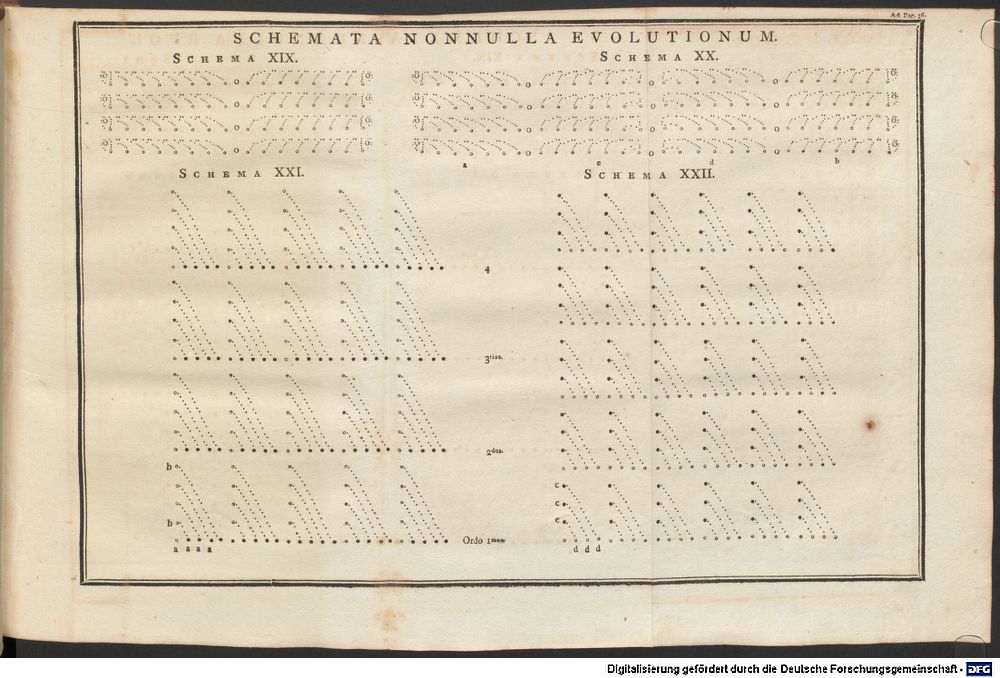 Ad Pag. 56.
SCHEMATA NONNULLA EVOLUTIONUM.
SCHEMA XIX.
SCHEMA XX.
a c d b
SCHEMA XXI.
SCHEMA XXII.
4
3tius.
2dus.
b
b
Ordo 1mus
a a a a
c
c
c
d d d
Digitalisierung gefördert durch die Deutsche Forschungsgemeinschaft - DFG